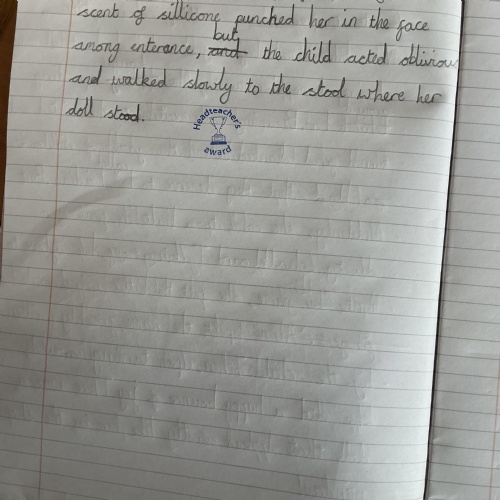 scent of sillicone punched her in the face
but
among enterance, and the child acted obliviou
and walked slowly to the stool where her
doll stood.
Headteacher's
award